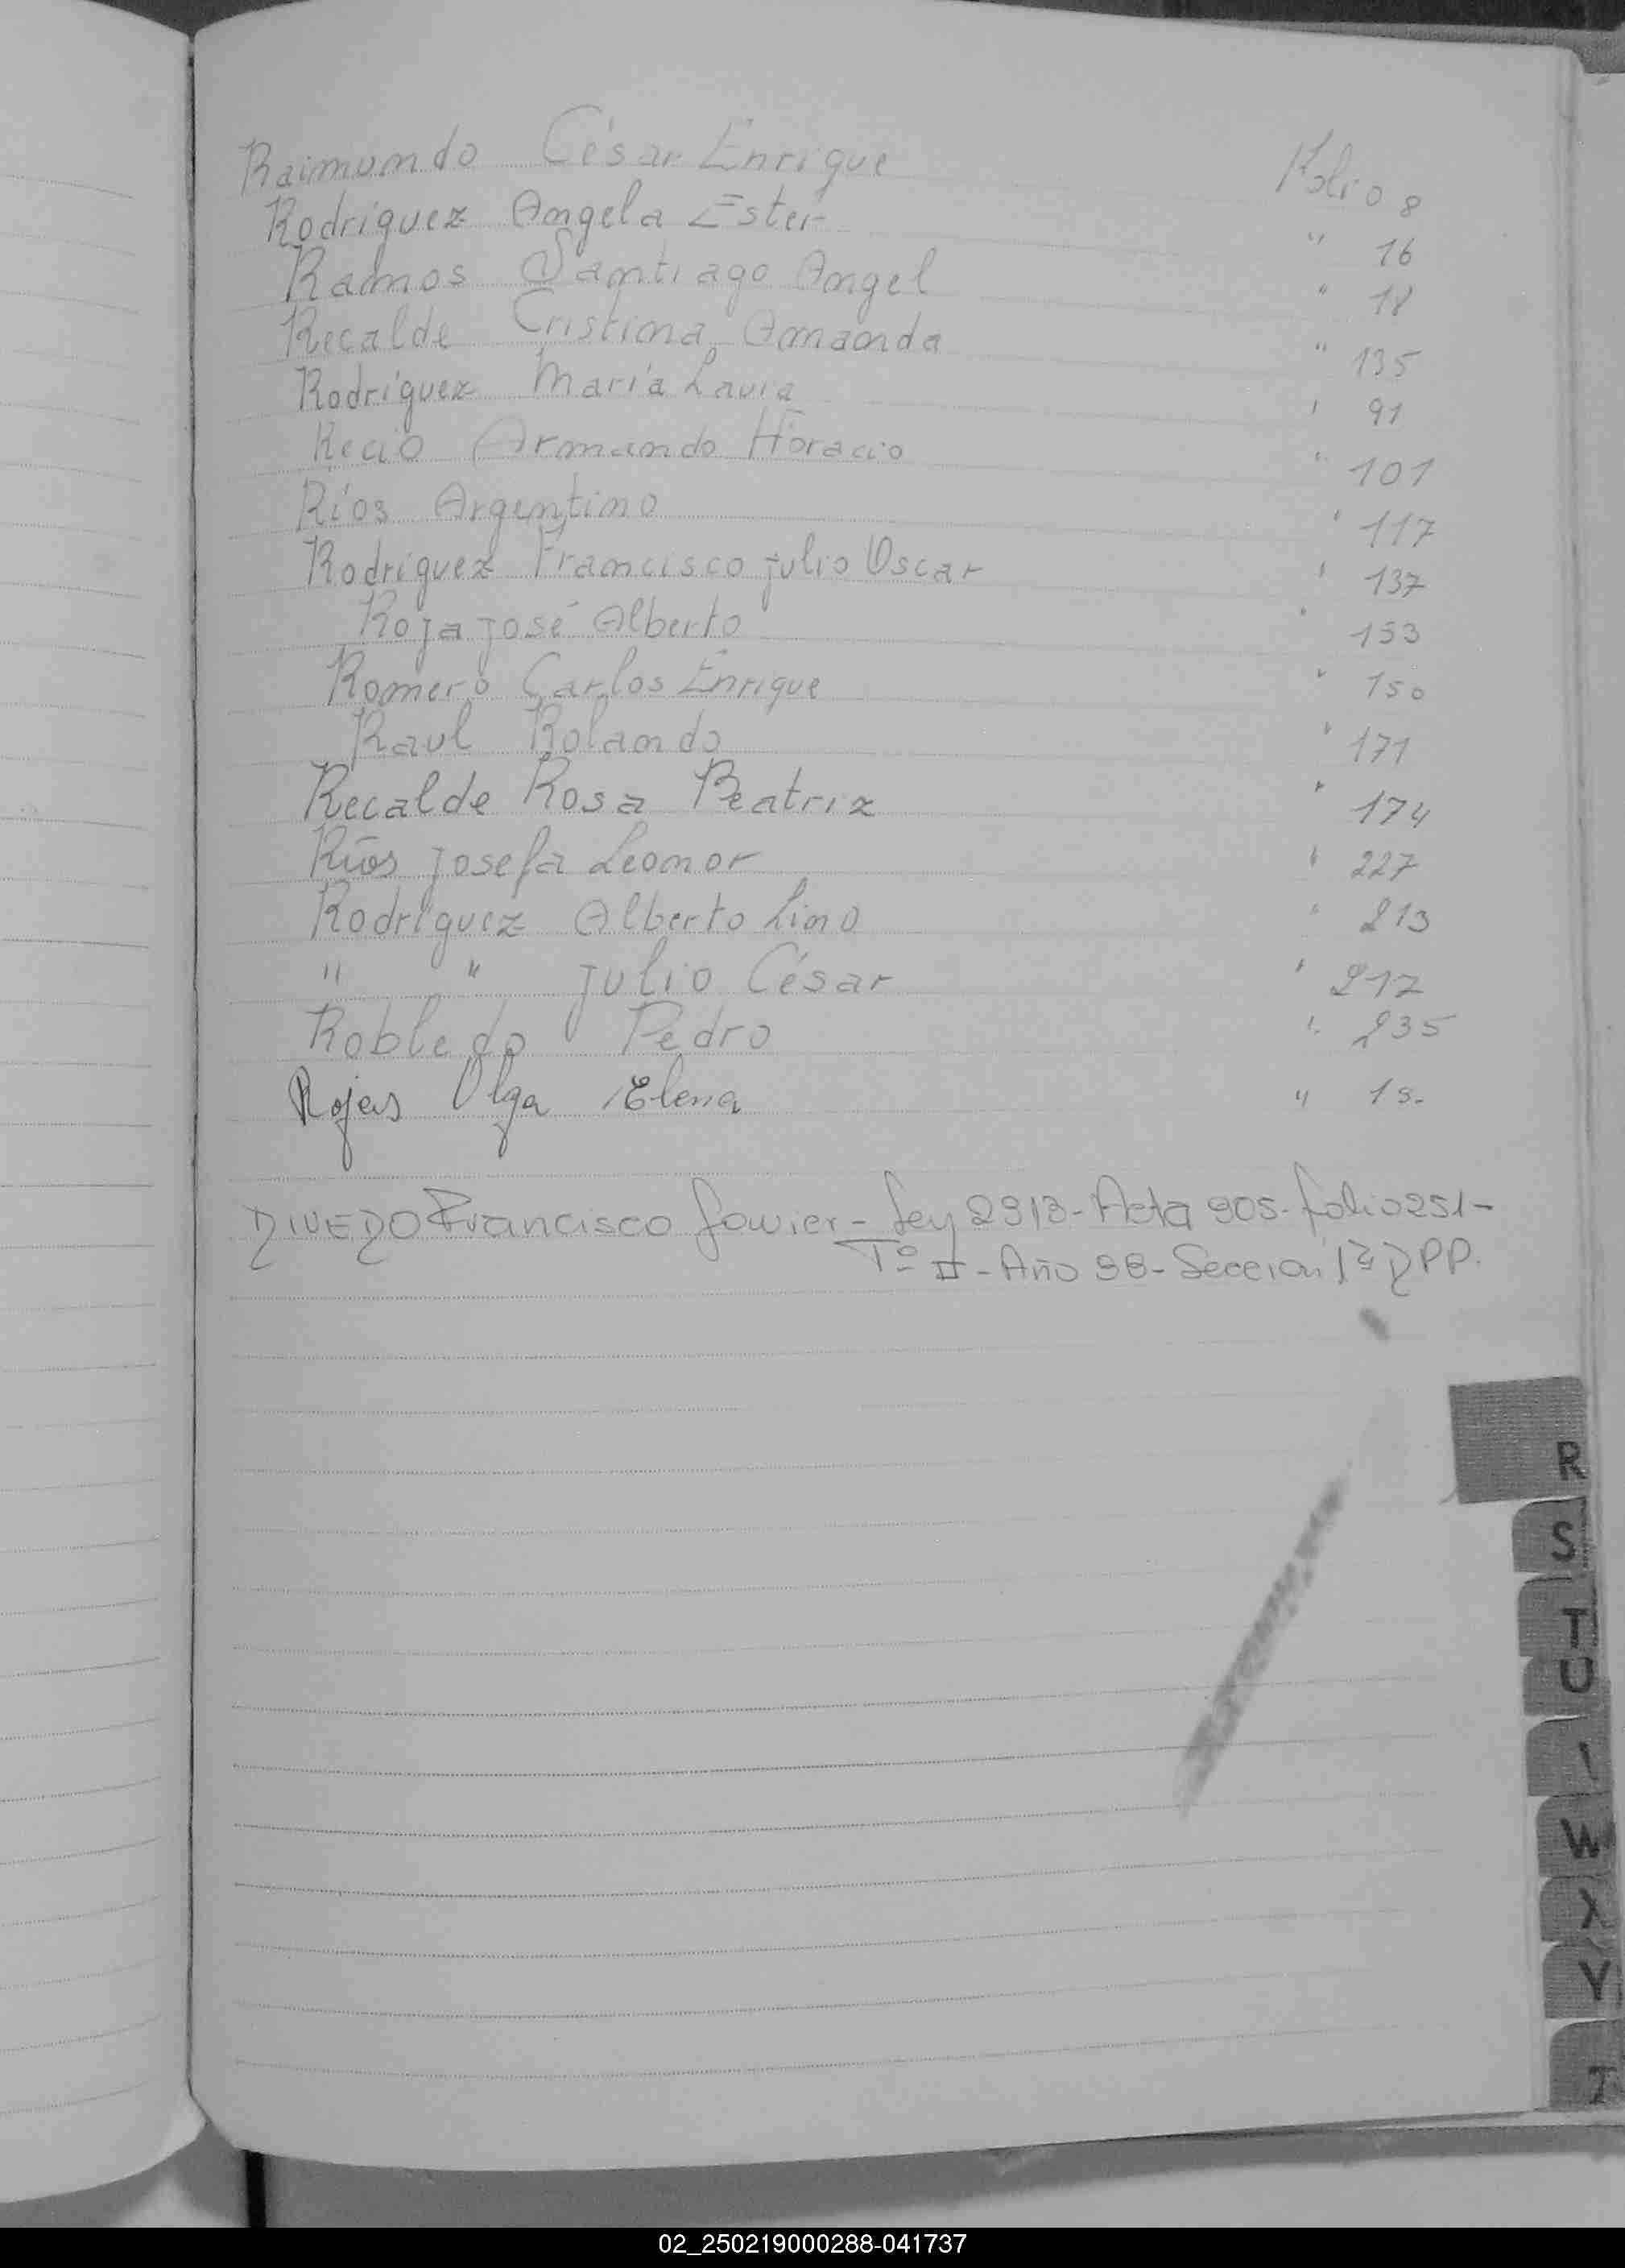 Raimundo César Enrique Folio 8
Rodríguez Angela Ester " 16
Ramos Santiago Angel " 18
Recalde Cristina Amanda " 135
Rodríguez María Laura ' 91
Recio Armando Horacio " 101
Ríos Argentino ' 117
Rodríguez Francisco Julio Oscar ' 137
Roja José Alberto ' 153
Romero Carlos Enrique " 150
Raul Rolando " 171
Recalde Rosa Beatriz " 174
Ríos Josefa Leonor ' 227
Rodríguez Alberto Lino " 213
" " Julio César ' 217
Robledo Pedro " 235
Rojas Olga Elena " 15.
Francisco Javier - Ley 2313 - Acta 905 - folio 251 -
Tº II - Año 98 - Sección 1ª RPP.
R
S
T
U
W
X
Y
02_250219000288-041737